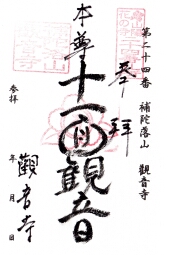 第二十四番 補陀落山 觀音寺
奉拝
本尊
十一面觀音
參拝
年 月 日
觀音寺